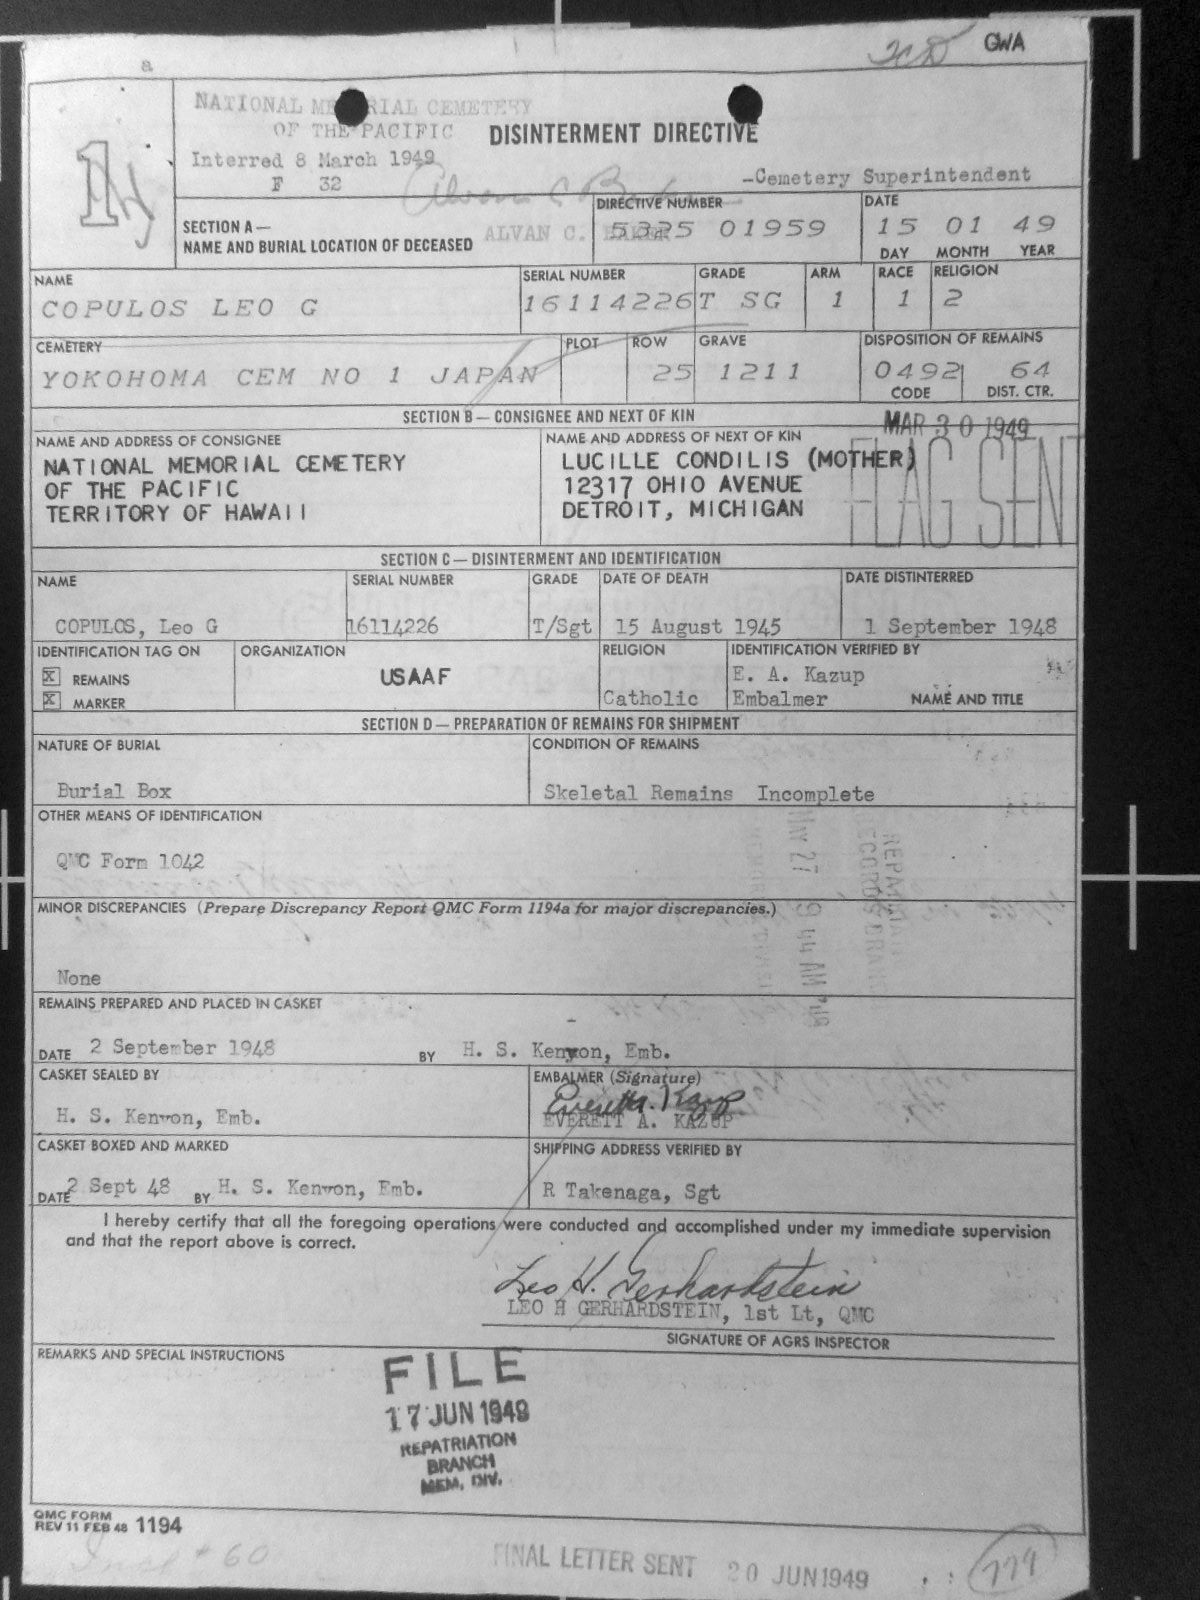 GWA
a
NATIONAL MEMORIAL CEMETERY
OF THE PACIFIC
DISINTERMENT DIRECTIVE
Interred 8 March 1949
F 32
-Cemetery Superintendent
SECTION A—
NAME AND BURIAL LOCATION OF DECEASED
ALVAN C. BAKER
DIRECTIVE NUMBER
5325 01959
DATE
15 01 49
DAY MONTH YEAR
NAME
COPULOS LEO G
SERIAL NUMBER
16114226
GRADE
T SG
ARM
1
RACE
1
RELIGION
2
CEMETERY
YOKOHOMA CEM NO 1 JAPAN
PLOT
ROW
25
GRAVE
1211
DISPOSITION OF REMAINS
0492 64
CODE DIST. CTR.
SECTION B—CONSIGNEE AND NEXT OF KIN
MAR 30 1949
NAME AND ADDRESS OF CONSIGNEE
NATIONAL MEMORIAL CEMETERY
OF THE PACIFIC
TERRITORY OF HAWAII
NAME AND ADDRESS OF NEXT OF KIN
LUCILLE CONDILIS (MOTHER)
12317 OHIO AVENUE
DETROIT, MICHIGAN
FLAG SENT
SECTION C—DISINTERMENT AND IDENTIFICATION
NAME
COPULOS, Leo G
SERIAL NUMBER
16114226
GRADE
T/Sgt
DATE OF DEATH
15 August 1945
DATE DISTINTERRED
1 September 1948
IDENTIFICATION TAG ON
X REMAINS
X MARKER
ORGANIZATION
USAAF
RELIGION
Catholic
IDENTIFICATION VERIFIED BY
E. A. Kazup
Embalmer
NAME AND TITLE
SECTION D—PREPARATION OF REMAINS FOR SHIPMENT
NATURE OF BURIAL
Burial Box
CONDITION OF REMAINS
Skeletal Remains Incomplete
OTHER MEANS OF IDENTIFICATION
QMC Form 1042
MINOR DISCREPANCIES (Prepare Discrepancy Report QMC Form 1194a for major discrepancies.)
None
MAY 27 9 44 AM '49
REMAINS PREPARED AND PLACED IN CASKET
DATE 2 September 1948 BY H. S. Kenyon, Emb.
CASKET SEALED BY
H. S. Kenyon, Emb.
EMBALMER (Signature)
Everett A. Kazup
EVERETT A. KAZUP
CASKET BOXED AND MARKED
DATE 2 Sept 48 BY H. S. Kenyon, Emb.
SHIPPING ADDRESS VERIFIED BY
R Takenaga, Sgt
I hereby certify that all the foregoing operations were conducted and accomplished under my immediate supervision
and that the report above is correct.
Leo H. Gerhardstein
LEO H GERHARDSTEIN, 1st Lt, QMC
SIGNATURE OF AGRS INSPECTOR
REMARKS AND SPECIAL INSTRUCTIONS
FILE
17 JUN 1949
REPATRIATION
BRANCH
MEM. DIV.
QMC FORM
REV 11 FEB 48 1194
Incl # 60
FINAL LETTER SENT 20 JUN 1949
779